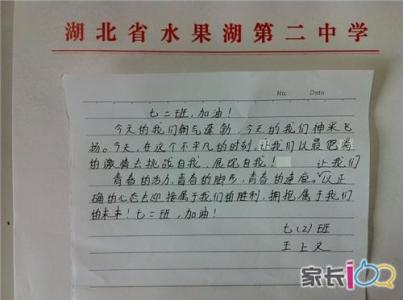 湖北省水果湖第二中学
No.  Data
七二班,加油!
今天的我们朝气蓬勃,今天的我们神采飞
扬。今天,在这个不平凡的时刻,让我们以最饱满
的激情去挑战自我,展现自我! 让我们
青春的活力,青春的脚步,青春的速度,以正
确的心态去迎接属于我们的胜利,拥抱属于我们
的未来!七二班,加油!
七(2)班
王上文
家长100